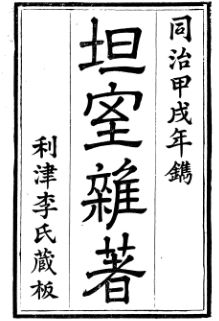 同治甲戌年鐫
坦室雜著
利津李氏藏板